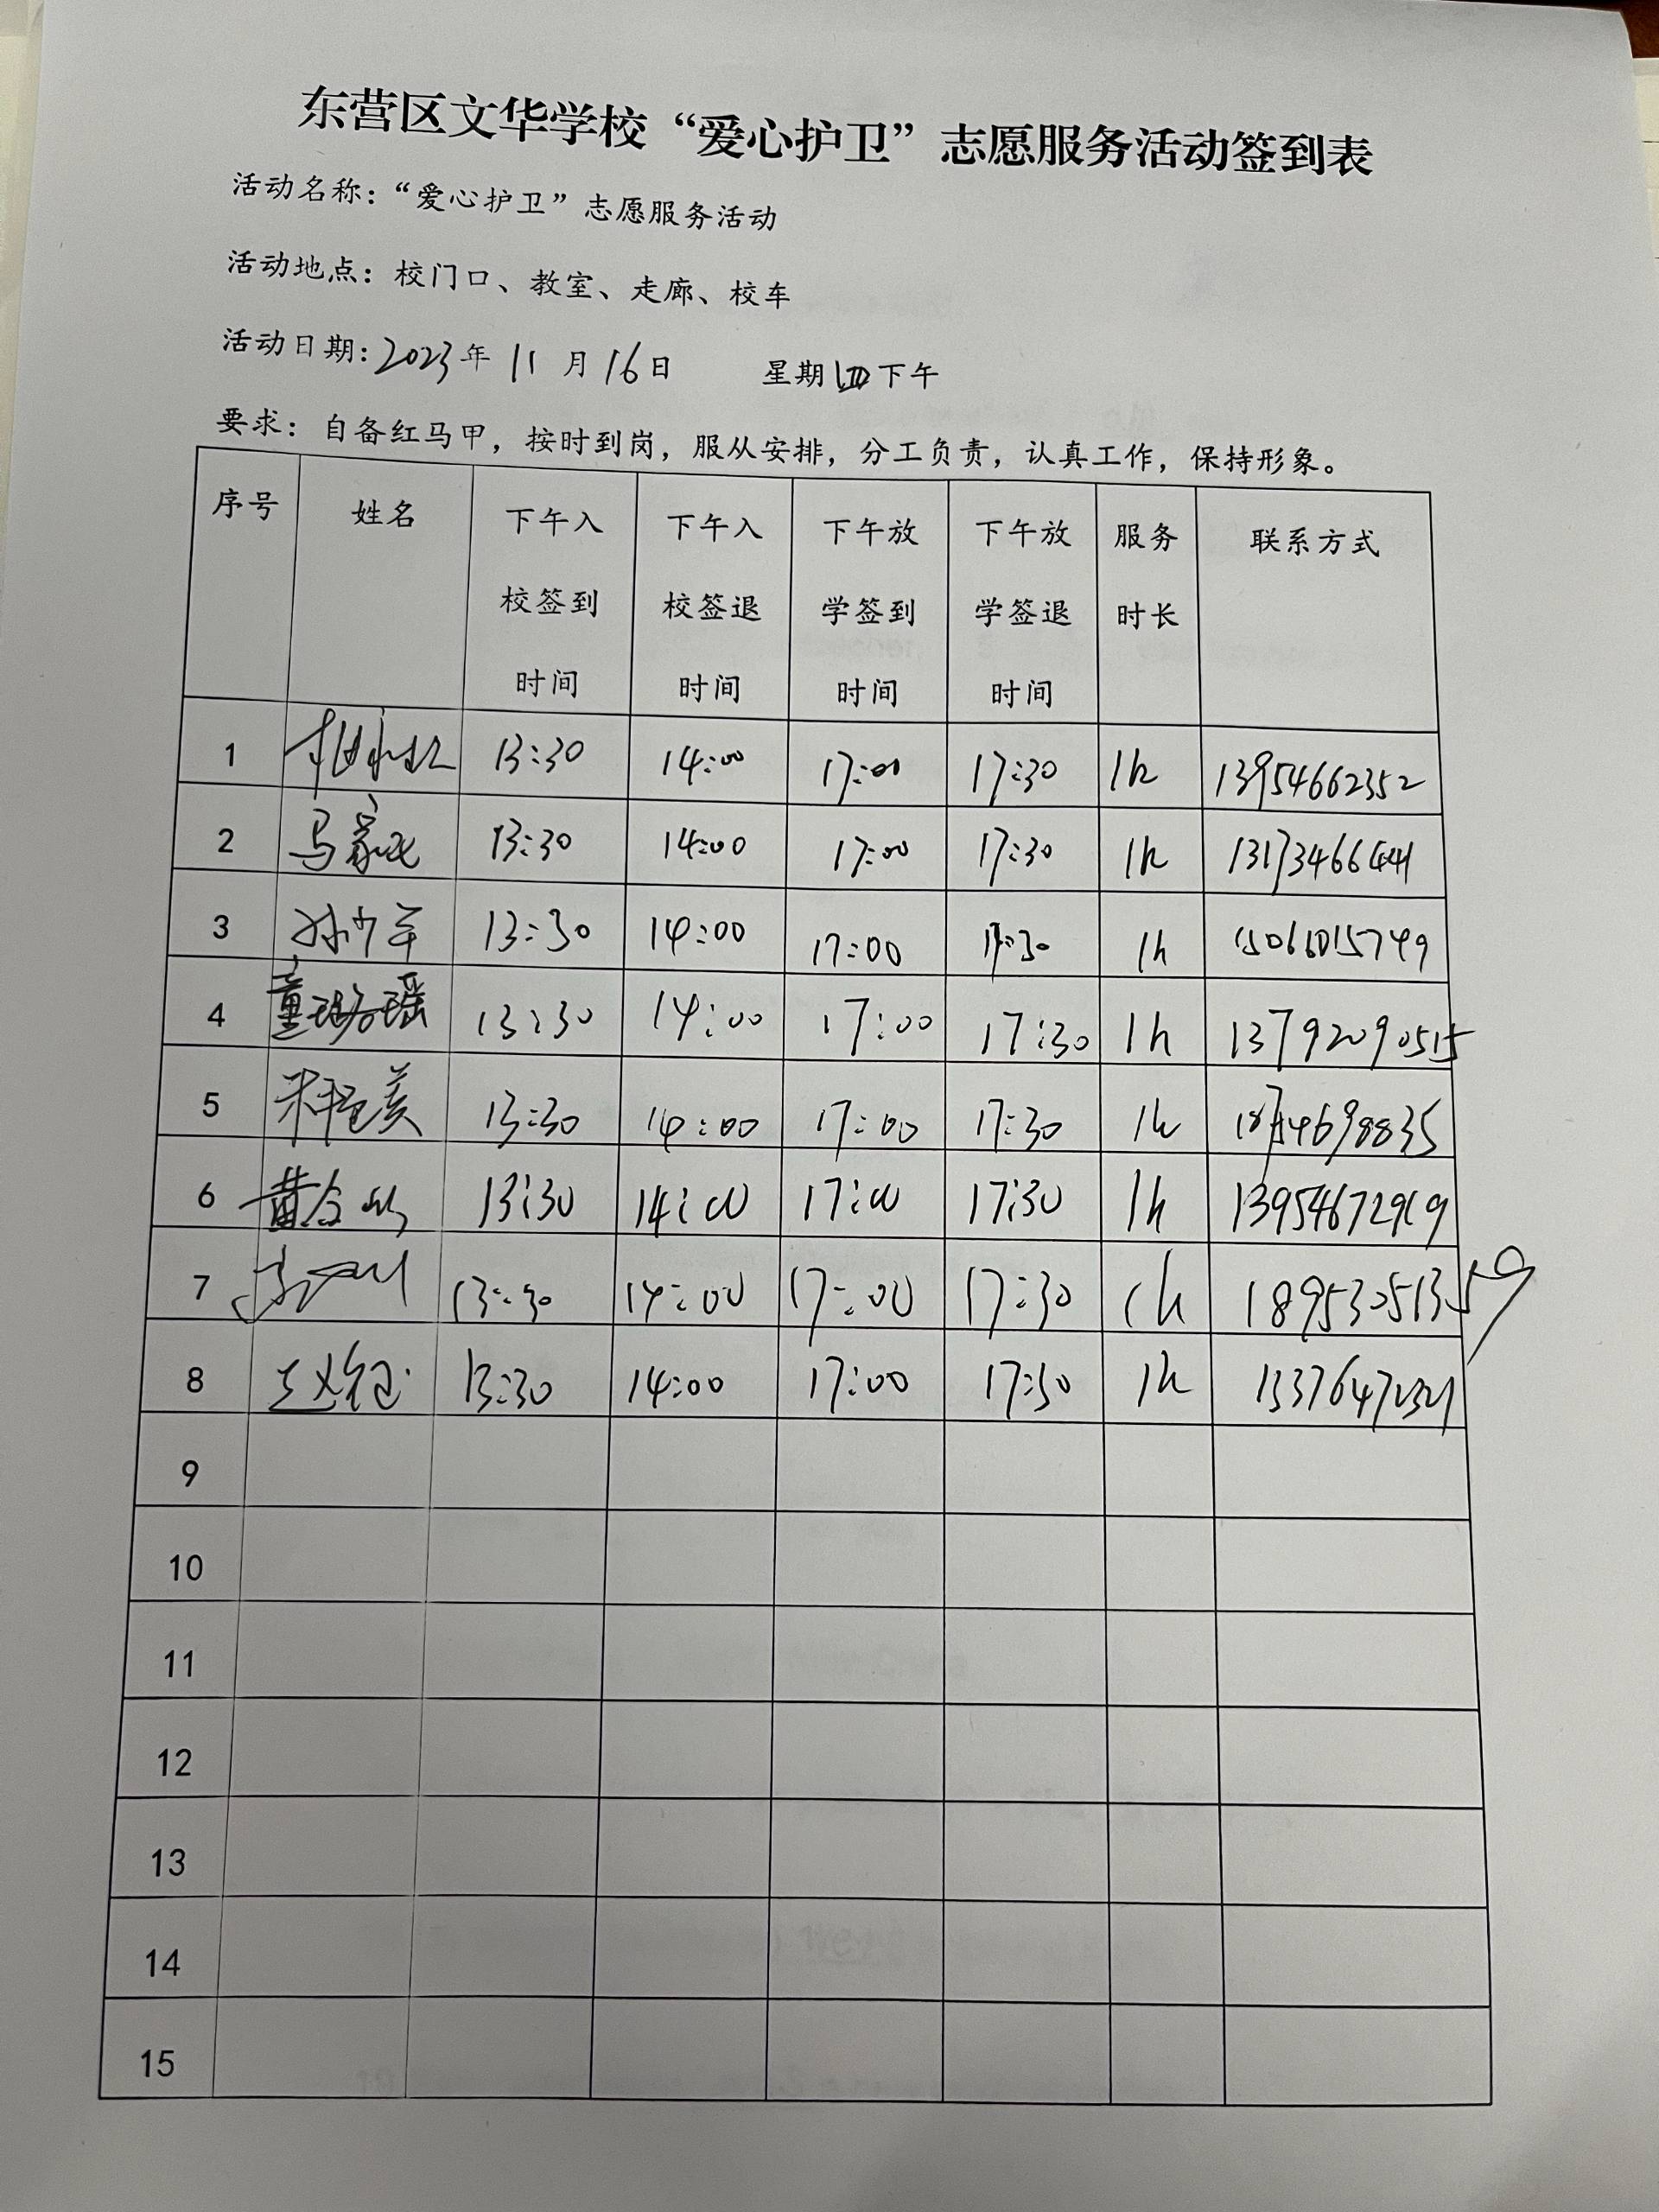 东营区文华学校“爱心护卫”志愿服务活动签到表
活动名称：“爱心护卫”志愿服务活动
活动地点：校门口、教室、走廊、校车
活动日期：2023年 11 月 16日 星期四下午
要求：自备红马甲，按时到岗，服从安排，分工负责，认真工作，保持形象。
序号 姓名 下午入校签到时间 下午入校签退时间 下午放学签到时间 下午放学签退时间 服务时长 联系方式
1 13:30 14:00 17:00 17:30 1h 13954662352
2 马 13:30 14:00 17:00 17:30 1h
3 孙少军 13:30 14:00 17:00 17:30 1h 15066015749
4 董瑶 13:30 14:00 17:00 17:30 1h 13792090515
5 13:30 14:00 17:00 17:30 1h
6 黄 13:30 14:00 17:00 17:30 1h 13954672919
7 13:30 14:00 17:00 17:30 1h 18953051359
8 13:30 14:00 17:00 17:30 1h
9
10
11
12
13
14
15